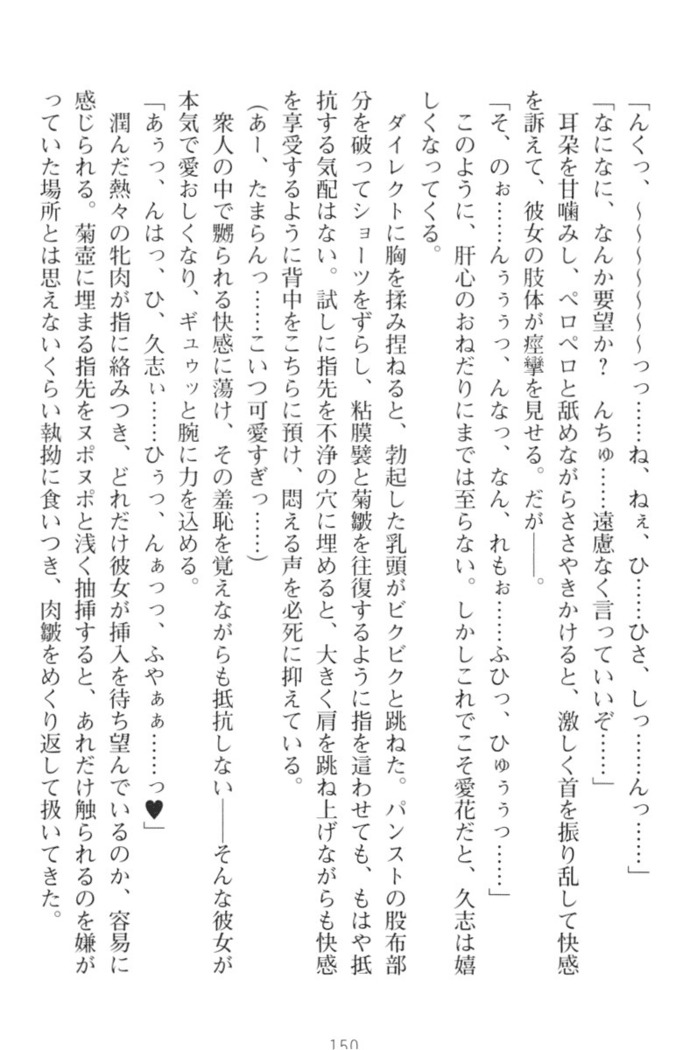 「んくっ、～～～～～～～っっ……ね、ねぇ、ひ……ひさ、しっ……んっ……」
「なになに、なんか要望か？　んちゅ……遠慮なく言っていいぞ……」
　耳朶を甘噛みし、ペロペロと舐めながらささやきかけると、激しく首を振り乱して快感
を訴えて、彼女の肢体が痙攣を見せる。だが――。
「そ、のぉ……んぅぅぅっ、んなっ、なん、れもぉ……ふひっ、ひゅぅぅっ……」
　このように、肝心のおねだりにまでは至らない。しかしこれでこそ愛花だと、久志は嬉
しくなってくる。
　ダイレクトに胸を揉み捏ねると、勃起した乳頭がビクビクと跳ねた。パンストの股布部
分を破ってショーツをずらし、粘膜襞と菊皺を往復するように指を這わせても、もはや抵
抗する気配はない。試しに指先を不浄の穴に埋めると、大きく肩を跳ね上げながらも快感
を享受するように背中をこちらに預け、悶える声を必死に抑えている。
（あー、たまらんっ……こいつ可愛すぎっ……）
　衆人の中で嬲られる快感に蕩け、その羞恥を覚えながらも抵抗しない――そんな彼女が
本気で愛おしくなり、ギュゥッと腕に力を込める。
「あぅっ、んはっ、ひ、久志ぃ……ひぅっ、んぁっっ、ふやぁぁ……っ♥」
　潤んだ熱々の牝肉が指に絡みつき、どれだけ彼女が挿入を待ち望んでいるのか、容易に
感じられる。菊壺に埋まる指先をヌポヌポと浅く抽挿すると、あれだけ触られるのを嫌が
っていた場所とは思えないくらい執拗に食いつき、肉皺をめくり返して扱いてきた。
150